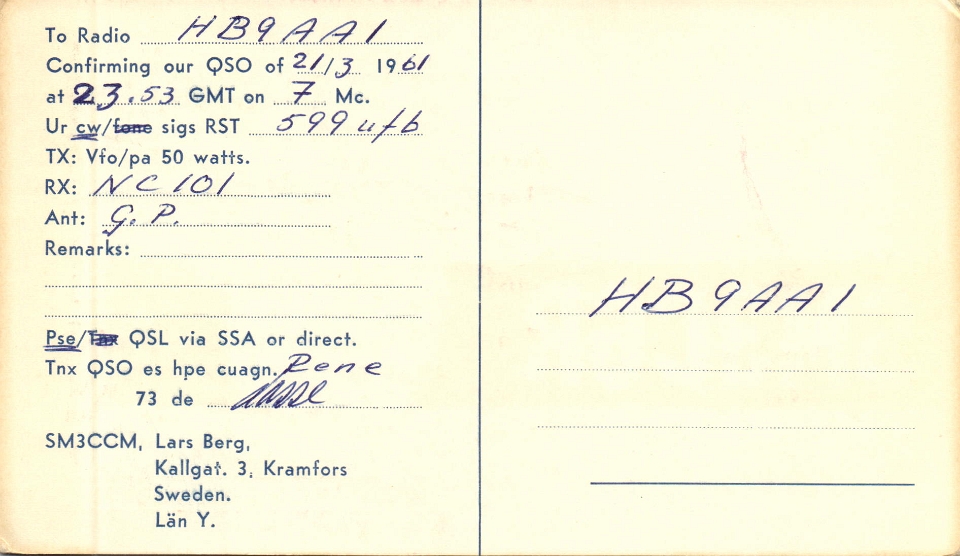 To Radio HB9AAI
Confirming our QSO of 21/3 1961
at 23.53 GMT on 7 Mc.
Ur cw/fone sigs RST 599 ufb
TX: Vfo/pa 50 watts.
RX: NC 101
Ant: G. P.
Remarks:
Pse/Tnx QSL via SSA or direct.
Tnx QSO es hpe cuagn. Rene
73 de Lasse
SM3CCM, Lars Berg,
Kallgat. 3, Kramfors
Sweden.
Län Y.
HB9AAI